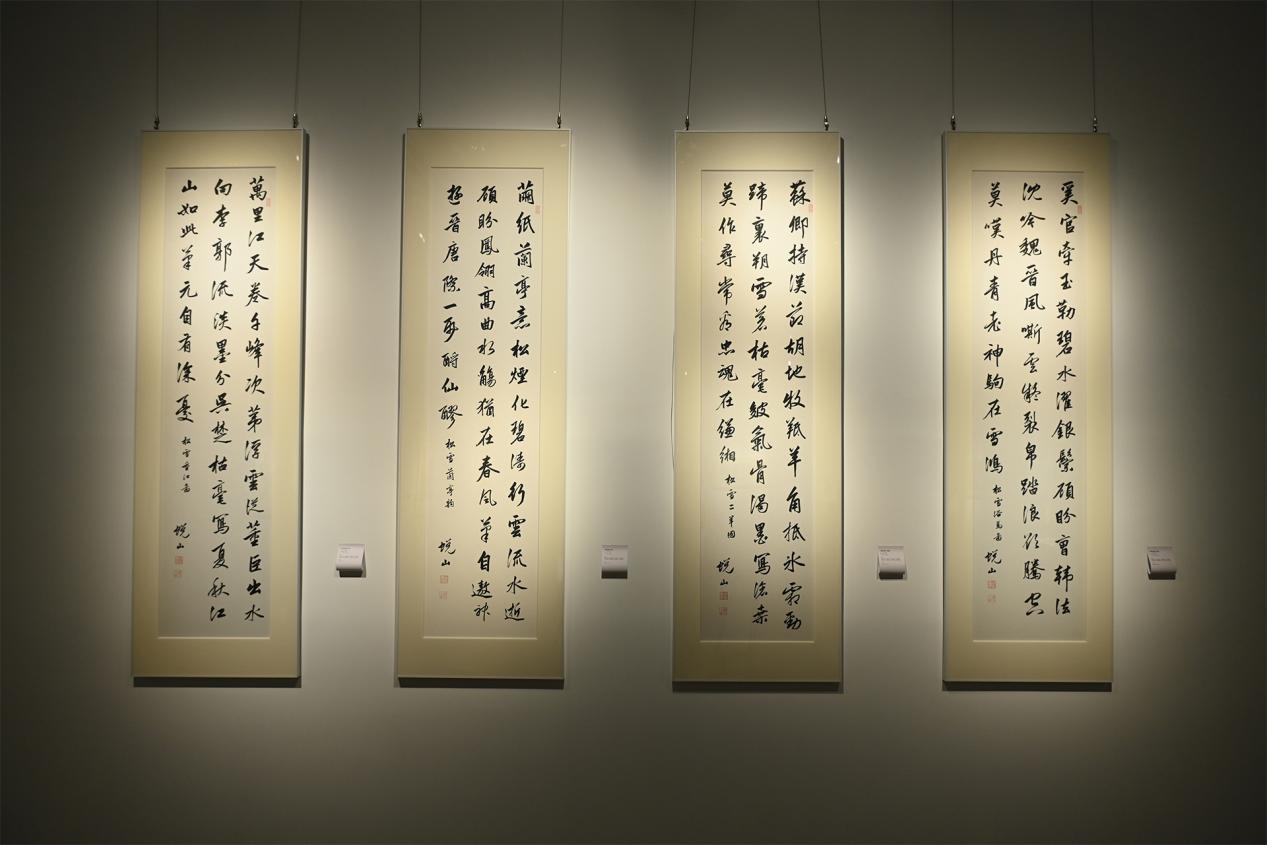 奚官牽玉勒碧水濯銀鬃顧盼曹韓法
沈吟魏晋風嘶雲凝裂帛踏浪欲騰空
莫嘆丹青老神駒在雪鴻 松雪浴馬圖 悅山
蘇卿持漢節胡地牧羝羊角抵冰霜勁
蹄裏朔雪蒼枯毫皴氣骨渴墨寫滄桑
莫作尋常看忠魂在縑緗 松雪二羊圖 悅山
繭紙蘭亭意松煙化碧濤行雲流水逝
顧盼鳳翎高曲水觴猶在春風筆自遨神
遊晉唐際一再酹仙醪 松雪蘭亭 悅山
萬里江天卷千峰次第浮雲從董巨出水
向李郭流淡墨分吳楚枯毫寫夏秋江
山如此筆元自有深憂 松雪重江圖 悅山